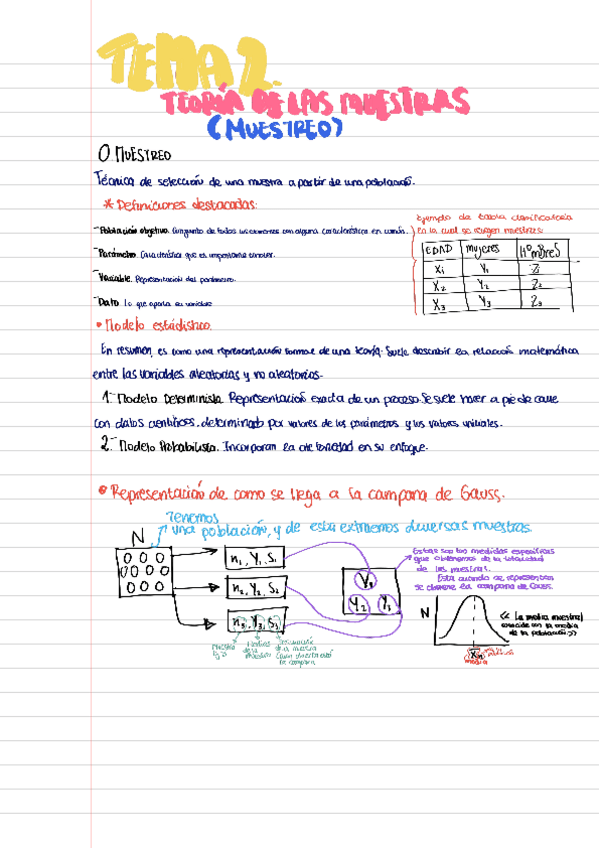 TEMA 2.
TEORÍA DE LAS MUESTRAS
(MUESTREO)
0. MUESTREO
Técnica de selección de una muestra a partir de una población.
* Definiciones destacadas:
- Población objetivo. Conjunto de todos los elementos con alguna característica en común.
- Parámetro. Característica que es importante conocer.
- Variable. Representación del parámetro.
- Dato. Lo que aporta su variable
ejemplo de tabla clasificatoria
en la cual se escogen muestras:
EDAD mujeres HOmBRES
X₁ Y₁ Z
X₂ Y₂ Z₂
X₃ Y₃ Z₃
• Modelo estadístico.
En resumen, es como una representación formal de una teoría. Suele describir la relación matemática
entre las variables aleatorias y no aleatorias.
1- Modelo Determinista. Representación exacta de un proceso. Se suele hacer a pie de calle
con datos científicos, determinado por valores de los parámetros y los valores iniciales.
2- Modelo Probabilista. Incorporan la aleatoriedad en su enfoque.
• Representación de como se llega a la campana de Gauss.
Tenemos
una población, y de esta extraemos diversas muestras
N
n₁, Y₁, S₁
n₂, Y₂, S₂
n₃, Y₃, S₃
Y₁
Y₂ Y₃
Estas son las medidas específicas
que obtenemos de la totalidad
de las muestras.
Esta cuando se representan
se obtiene la campana de Gauss.
N
<< La media muestral
coincide con la media
de la población >>
media